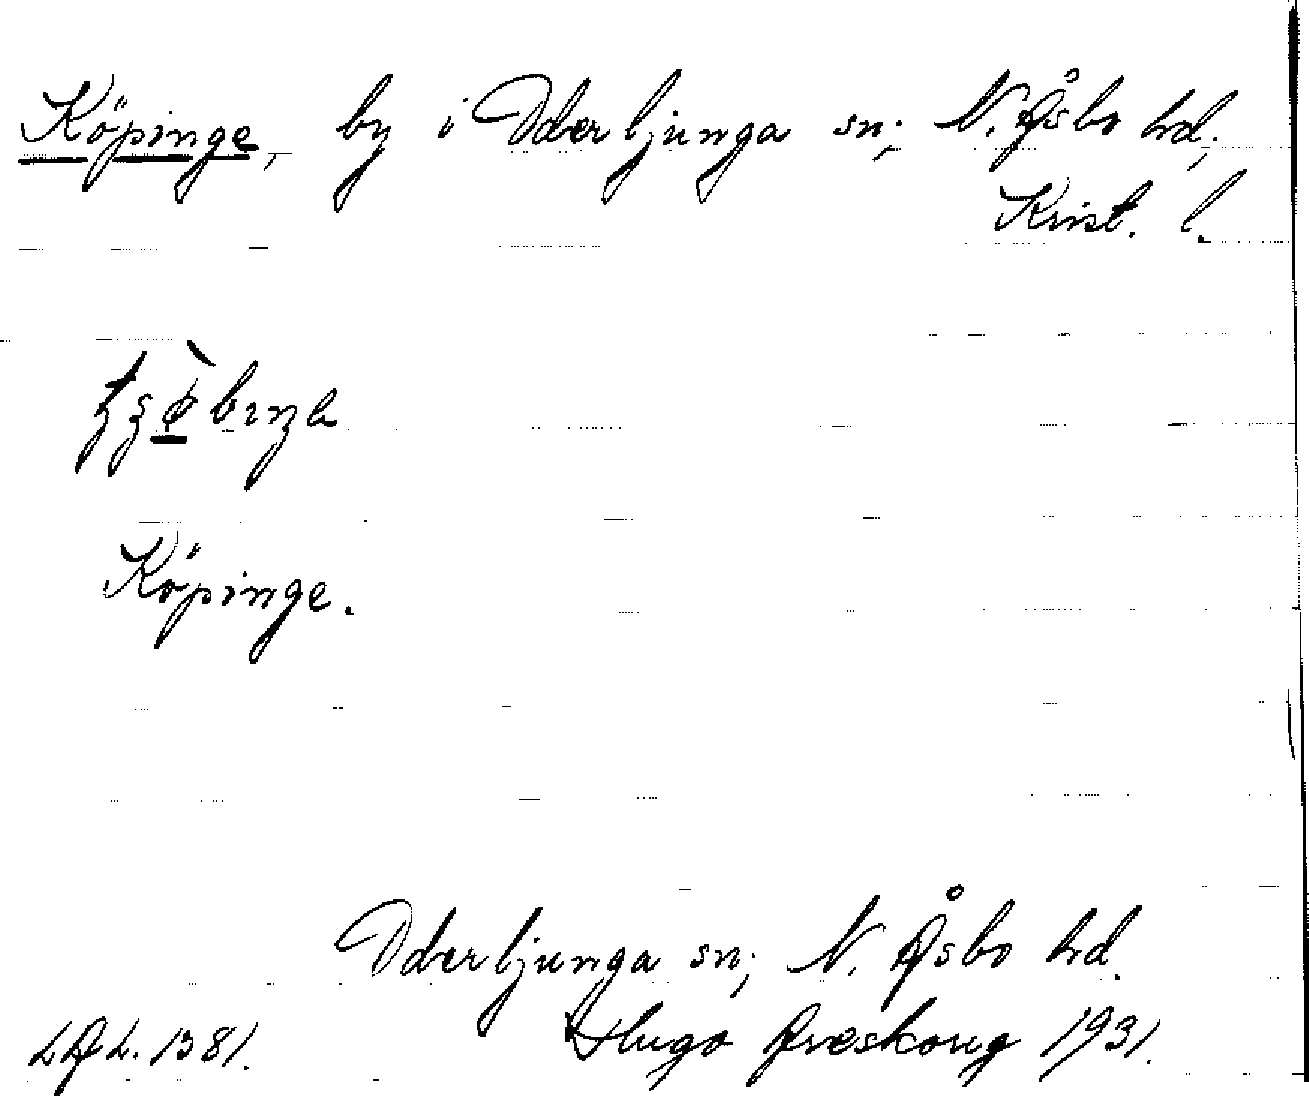 Köpinge, by i Oderljunga sn; N. Åsbo hd;
Krist. l.
Köpinge.
Oderljunga sn; N. Åsbo hd.
LAL. 1381. Hugo Areskoug 1931.